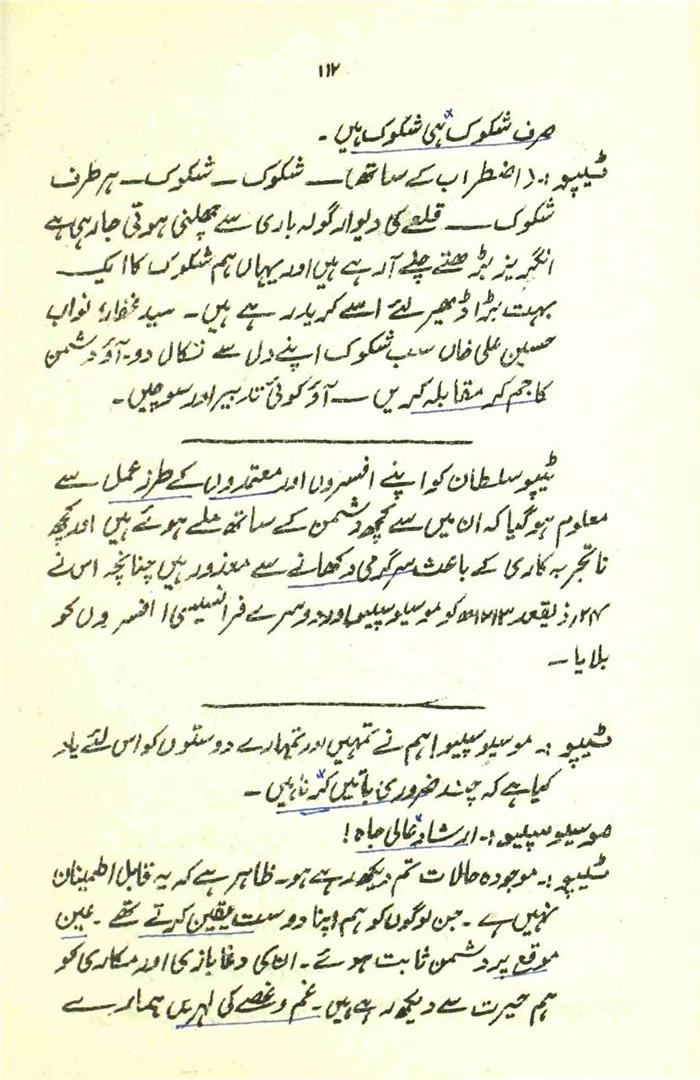 ۱۱۲
صرف شکوک ہی شکوک ہیں۔
ٹیپو:۔ (اضطراب کے ساتھ) — شکوک — شکوک — ہر طرف
شکوک — قلعے کی دیوار گولہ باری سے چھلنی ہوتی جا رہی ہے
انگریز بڑھتے چلے آ رہے ہیں اور یہاں ہم شکوک کا ایک
بہت بڑا ڈھیر لئے اسے کرید رہے ہیں۔ سید غفار، نواب
حسین علی خاں سب شکوک اپنے دل سے نکال دو۔ آؤ دشمن
کا جم کر مقابلہ کریں — آؤ کوئی تدبیر اور سوچیں۔
ٹیپو سلطان کو اپنے افسروں اور معتمدوں کے طرز عمل سے
معلوم ہو گیا کہ ان میں سے کچھ دشمن کے ساتھ ملے ہوئے ہیں اور کچھ
ناتجربہ کاری کے باعث سرگرمی دکھانے سے معذور ہیں چنانچہ اس نے
۲۴؍ ذیقعد ۱۲۱۳ھ کو موسیو سپیو اور دوسرے فرانسیسی افسروں کو
بلایا —
ٹیپو:۔ موسیو سپیو! ہم نے تمہیں اور تمہارے دوستوں کو اس لئے یاد
کیا ہے کہ چند ضروری باتیں کرنا ہیں۔
موسیو سپیو:۔ ارشاد عالی جاہ!
ٹیپو:۔ موجودہ حالات تم دیکھ رہے ہو۔ ظاہر ہے کہ یہ قابل اطمینان
نہیں ہے۔ جن لوگوں کو ہم اپنا دوست یقین کرتے تھے۔ عین
موقع پر دشمن ثابت ہوئے۔ ان کی دغا بازی اور مکاری کو
ہم حیرت سے دیکھ رہے ہیں۔ غم و غصے کی لہریں ہمارے